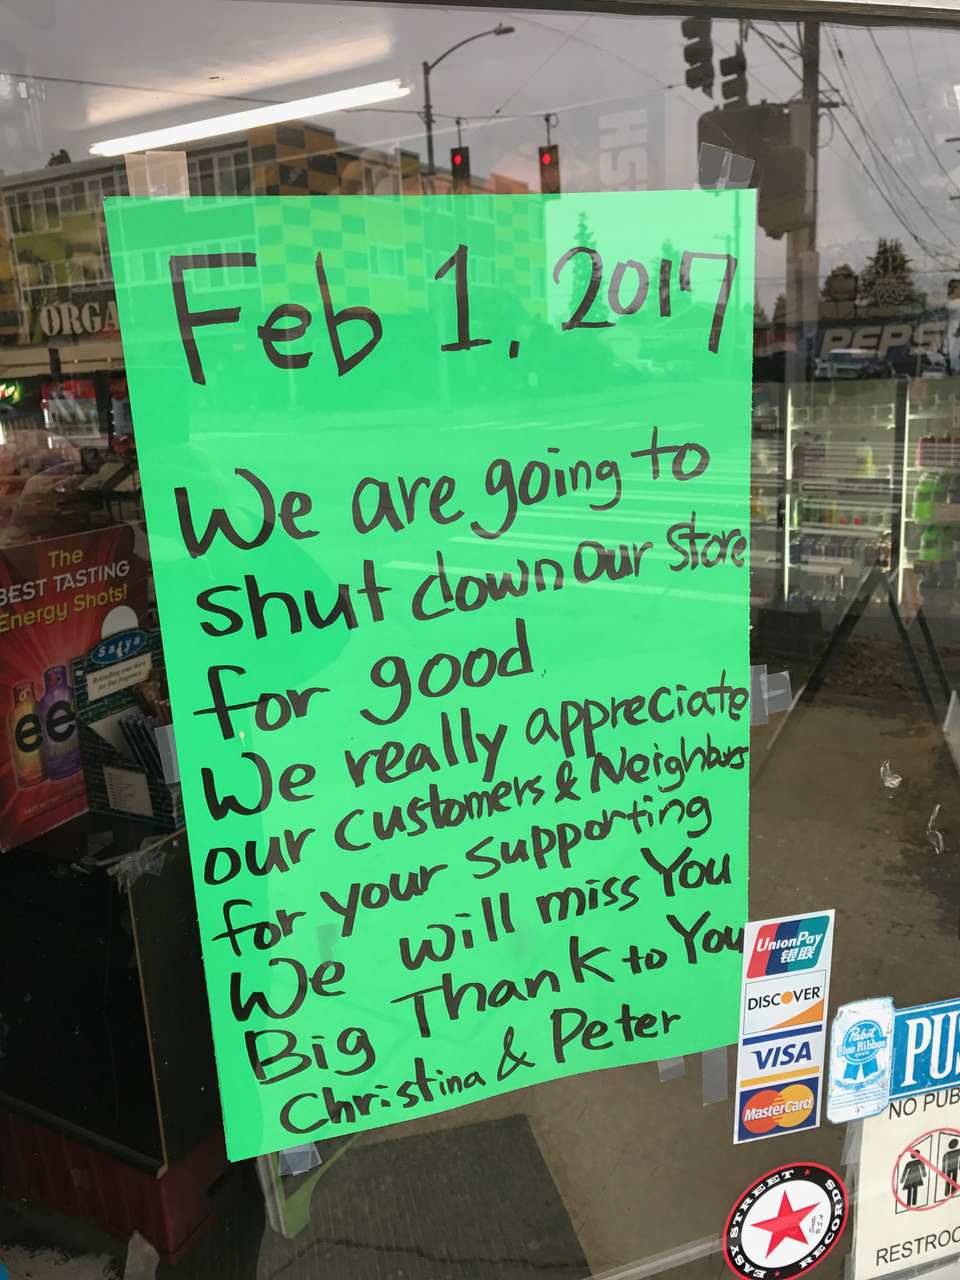 Feb 1, 2017
We are going to
shut down our store
for good.
We really appreciate
our customers & Neighbors
for your supporting
We will miss You
Big Thank to You
Christina & Peter
ORGA
PEPS
The
BEST TASTING
Energy Shots!
Satya
ee
UnionPay
银联
DISCOVER
VISA
MasterCard
Pabst
Blue Ribbon
PUS
NO PUB
RESTROO
EASY STREET
RECORDS